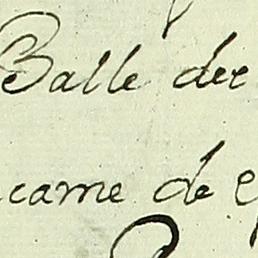 Balle der
came de